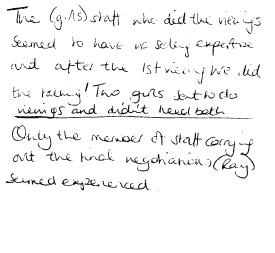 The (girls) staff who did the viewings
seemed to have no selling expertise
and after the 1st viewing we did
the talking! Two girls sent to do
viewings and didn't need both
(Only the member of staff carrying
out the final negotiations (Ray)
seemed experienced.